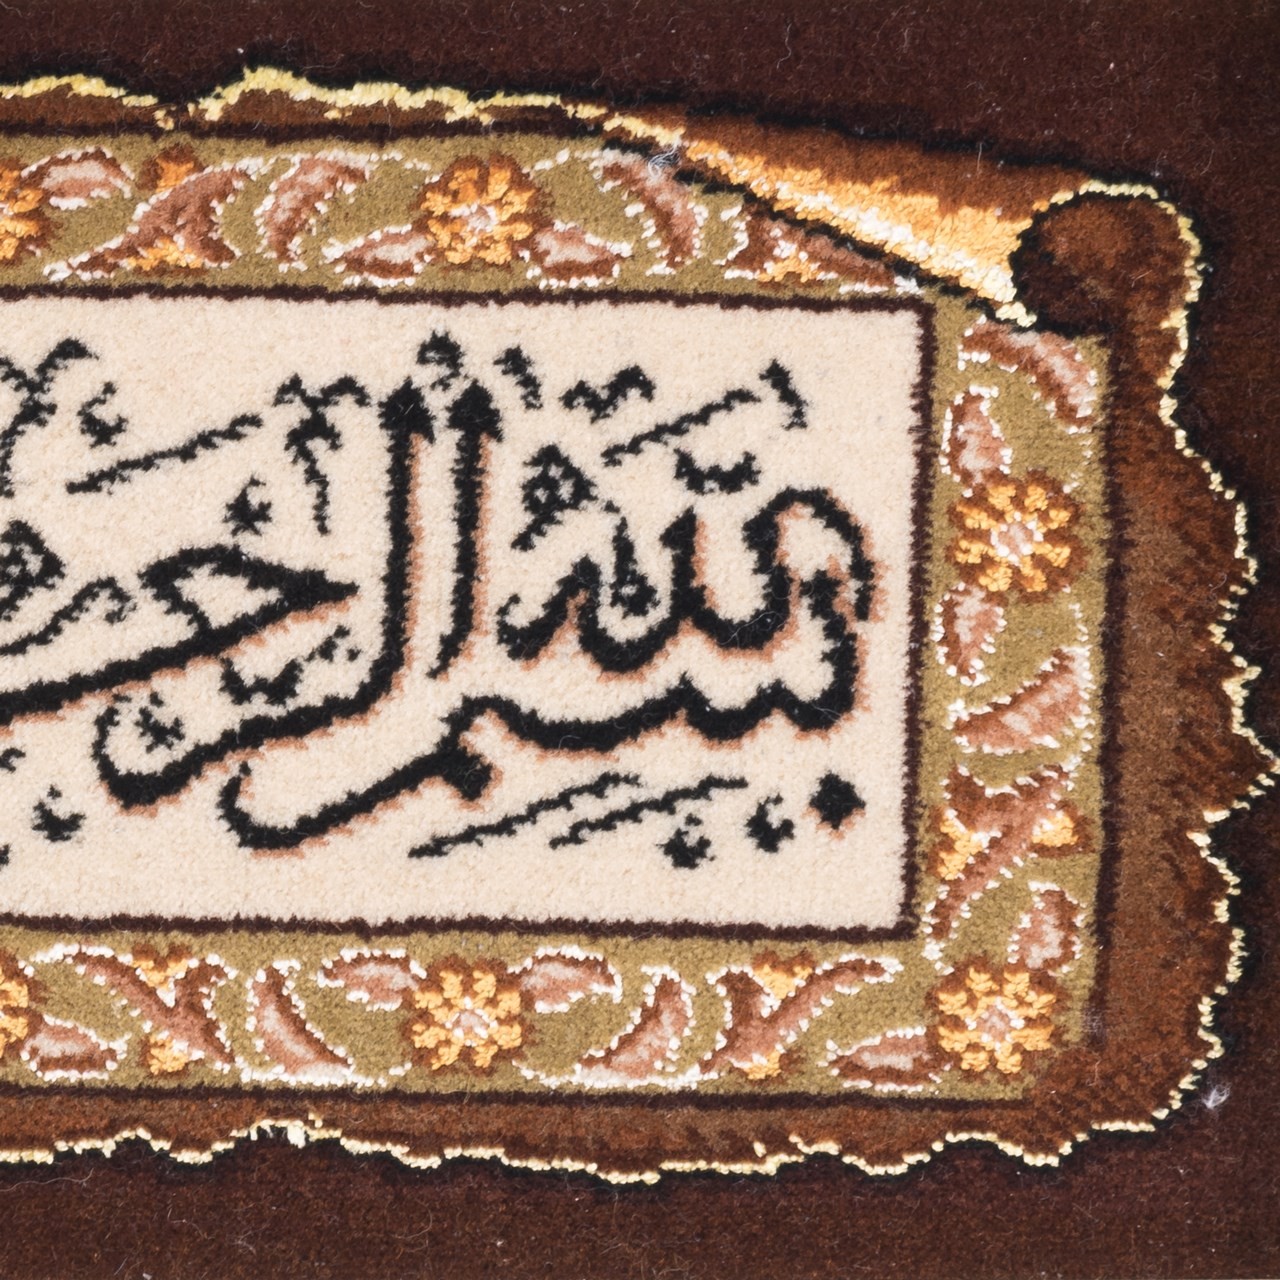 بسم الله الرح